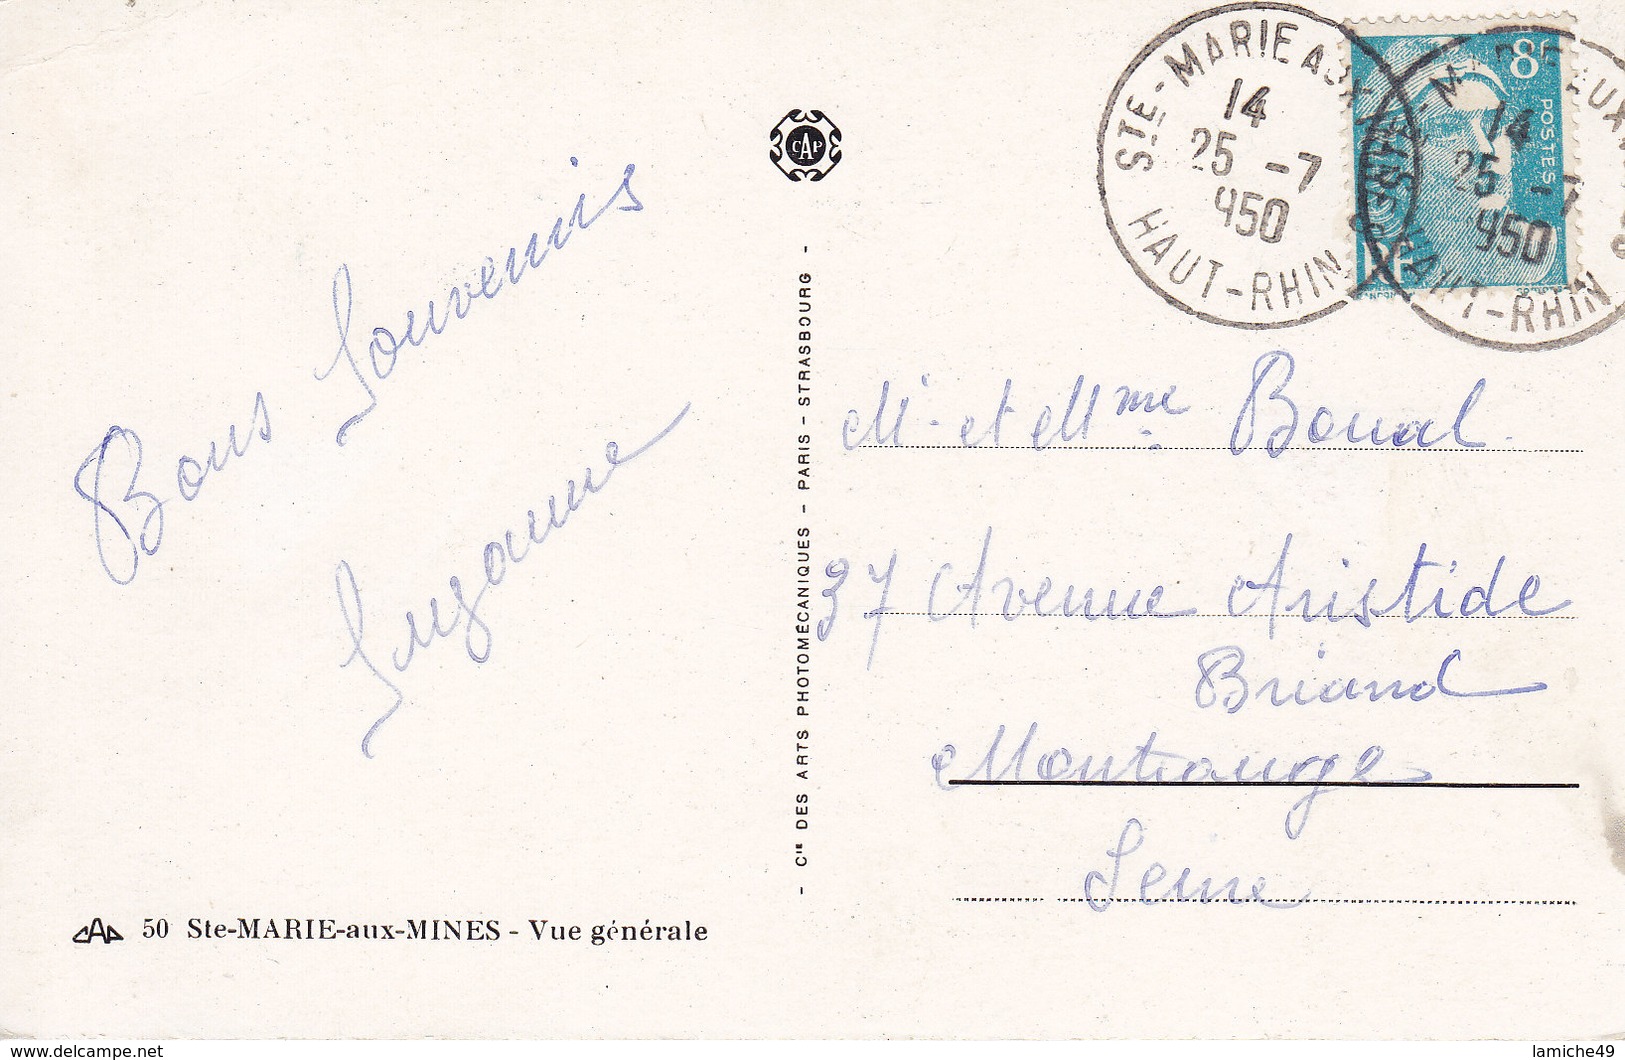 Bons Souvenirs
Suzanne
CAP
50 Ste-MARIE-aux-MINES - Vue générale
- Cie DES ARTS PHOTOMÉCANIQUES - PARIS - STRASBOURG -
CAP
STE-MARIE AUX MINES
14
25 -7
950
HAUT-RHIN
8F
POSTES
MARIE AUX
14
25 -7
950
HAUT-RHIN
Mr et Mme Boual
37 Avenue Aristide
Briand
Montrouge
Seine
www.delcampe.net
lamiche49